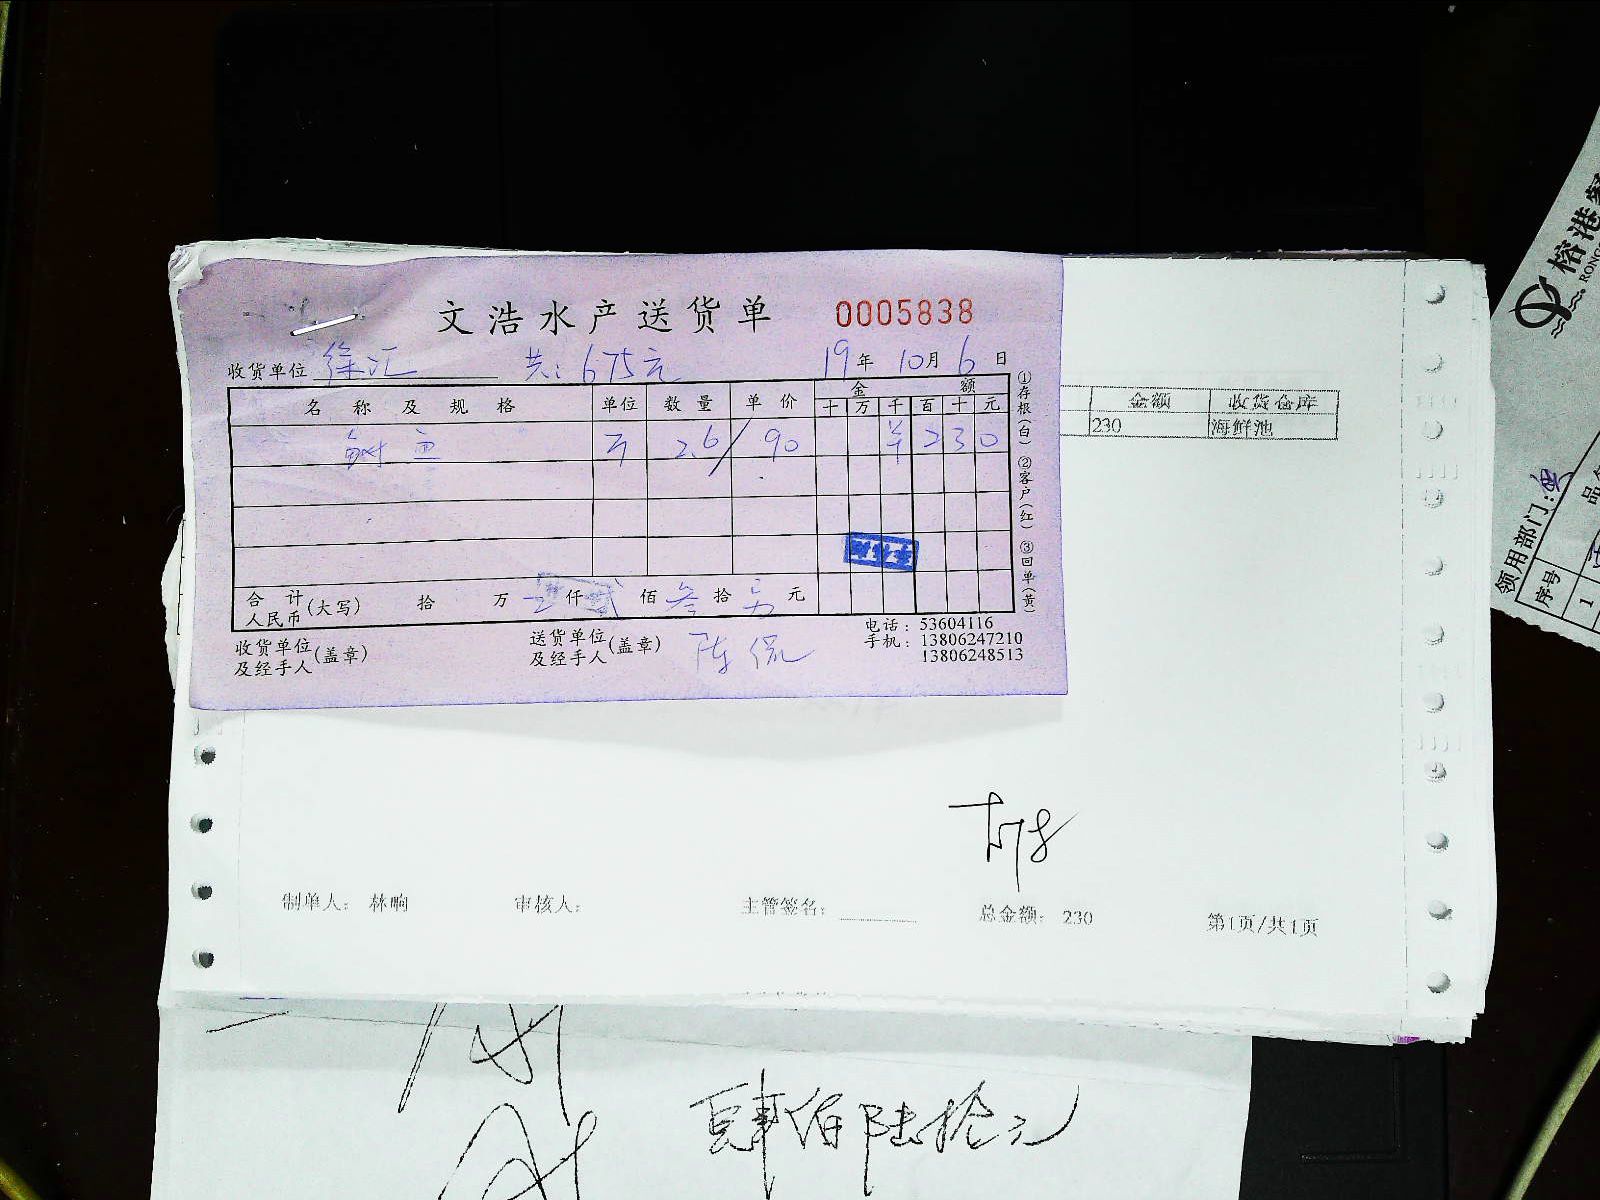 文浩水产送货单 0005838
收货单位 徐汇 共:675元 19年10月6日
名称及规格 单位 数量 单价 金额
十 万 千 百 十 元
鱼 斤 2.6 90 ¥ 2 3 0
合计人民币(大写) 拾 万 仟 贰 佰 叁 拾 元
收货单位及经手人(盖章) 送货单位及经手人(盖章) 陈
电话:53604116
手机:13806247210
13806248513
①存根(白) ②客户(红) ③回单(黄)
金额 收货仓库
230 海鲜池
制单人: 林响 审核人: 主管签名: 总金额: 230 第1页/共1页
肆佰陆拾元
榕港
RONG
领用部门:
序号 品
1